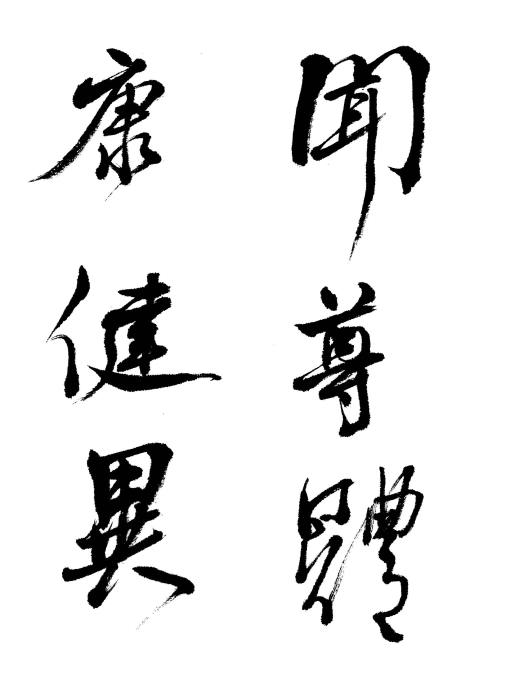 聞尊體
康健異